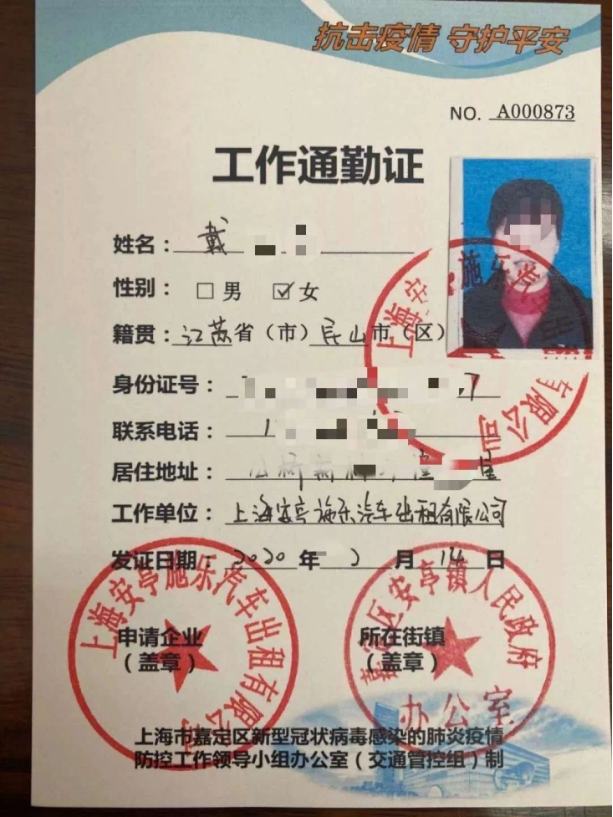 抗击疫情 守护平安
NO. A000873
工作通勤证
姓名：戴
性别：□男 ☑女
籍贯：江苏省（市）昆山市（区）
身份证号：
联系电话：1
居住地址：
工作单位：上海安亭施乐汽车出租有限公司
发证日期：2020年2月14日
上海安亭施乐汽车出租有限公司
上海安亭施乐汽车出租有限公司
申请企业
（盖章）
嘉定区安亭镇人民政府
办公室
所在街镇
（盖章）
上海市嘉定区新型冠状病毒感染的肺炎疫情
防控工作领导小组办公室（交通管控组）制